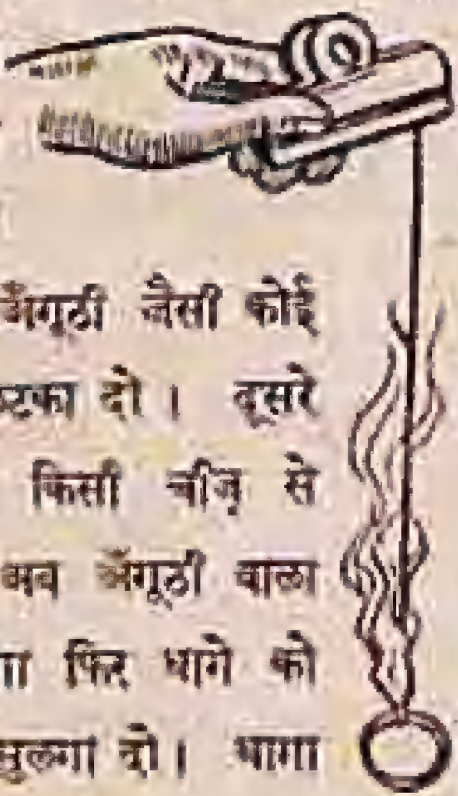 अँगूठी जैसी कोई
टका दो। दूसरे
किसी चीज़ से
अब अँगूठी वाला
गा फिर धागे को
सुलगा दो। धागा